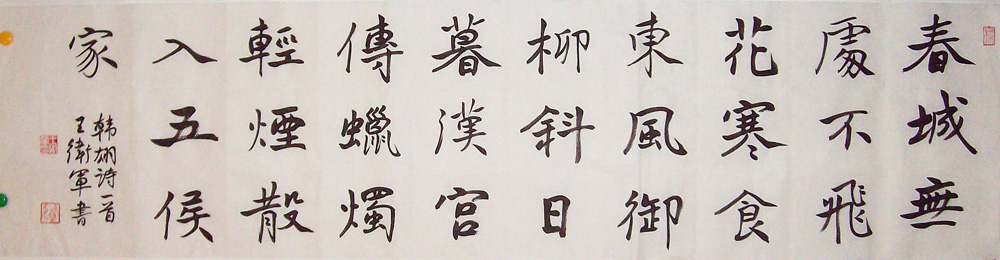 春城無
處不飛
花寒食
東風御
柳斜日
暮漢宮
傳蠟燭
輕煙散
入五侯
家
韩翃詩一首
王衛軍書